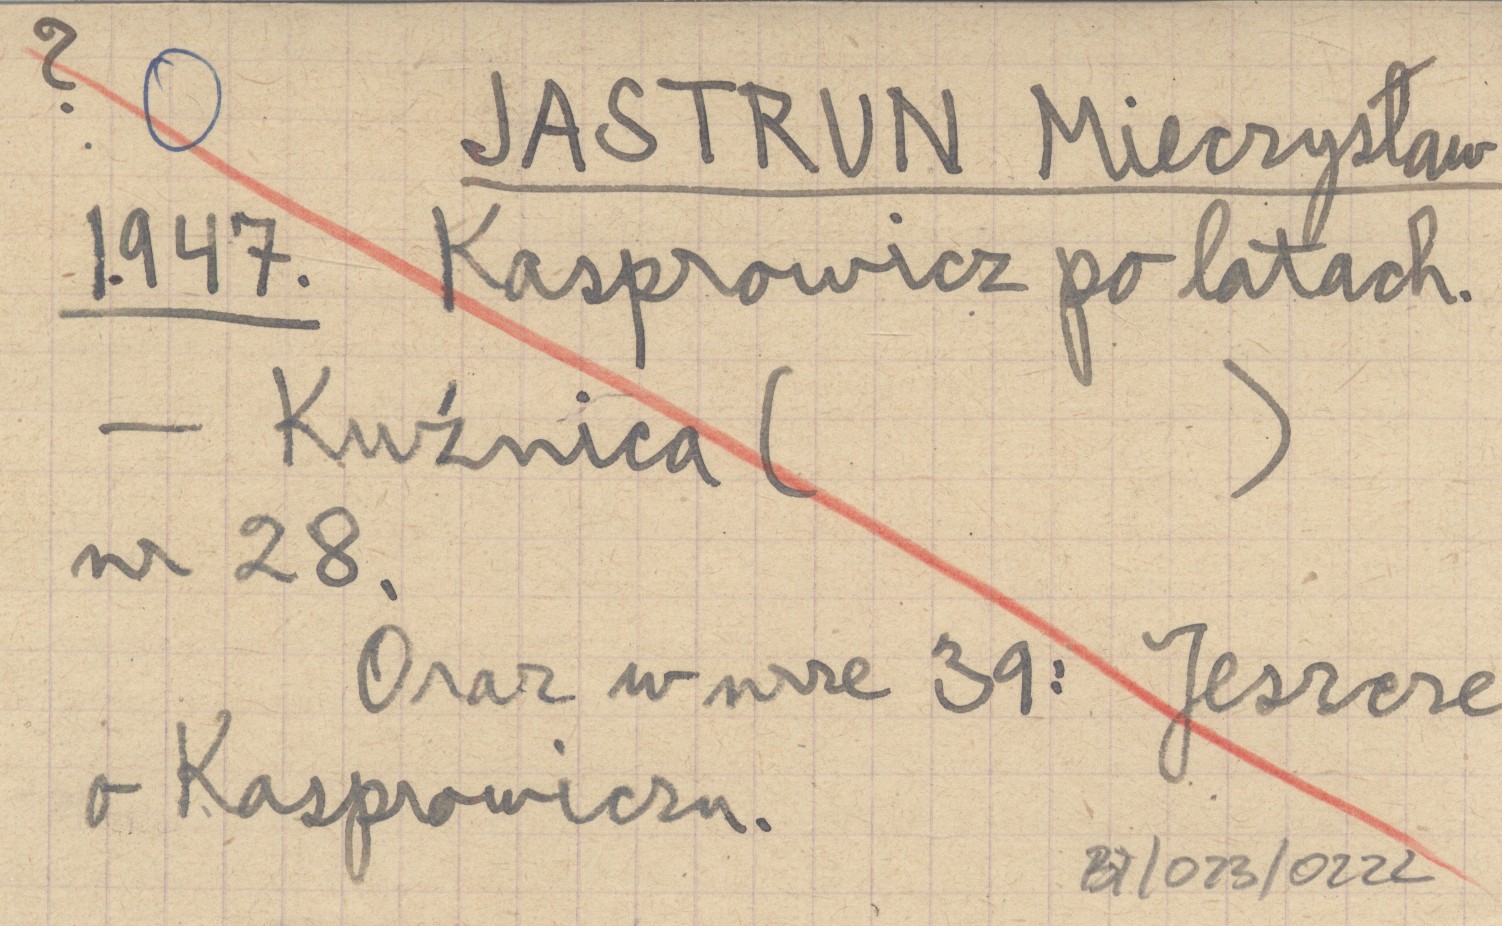 ?
JASTRUN Mieczysław
1947. Kasprowicz po latach.
— Kuźnica ( )
nr 28.
Oraz w nrze 39: Jeszcze
o Kasprowiczu.
/023/0222